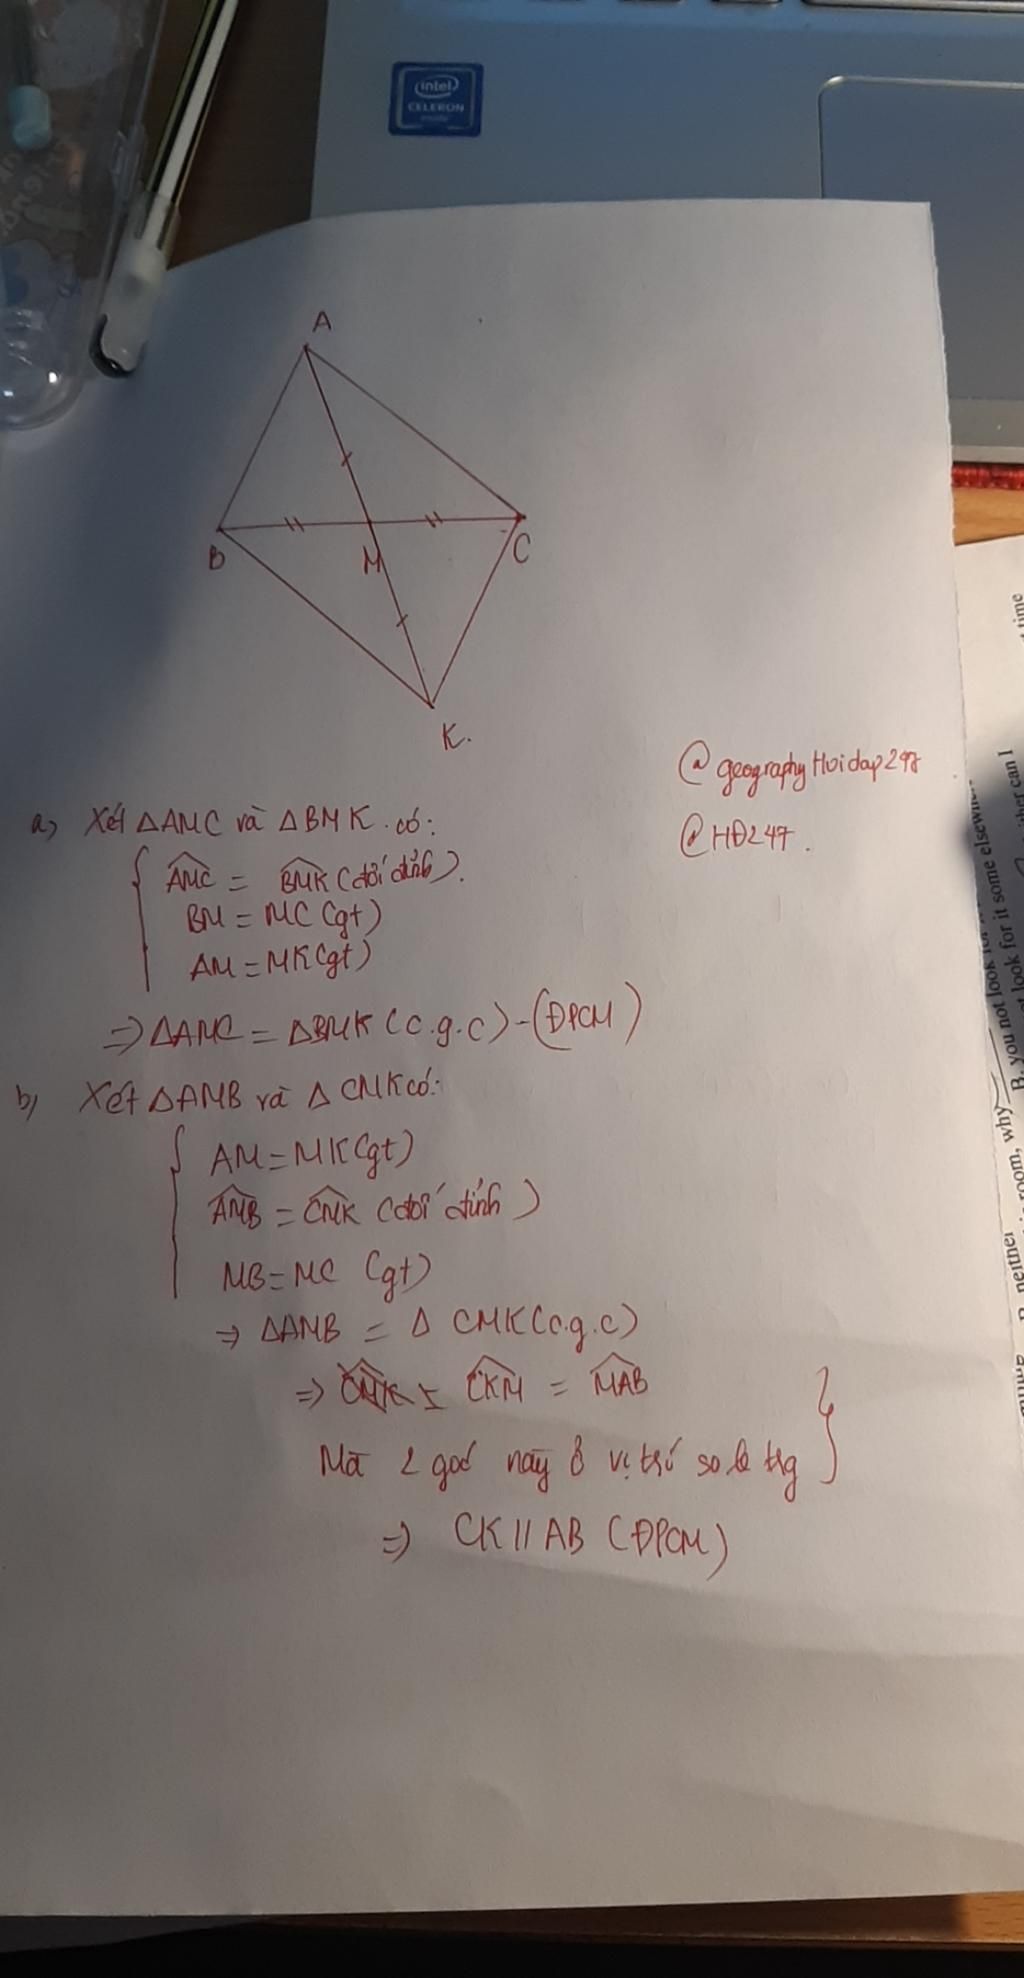 intel
CELERON
inside
A
B
M
C
K.
@geographyHoidap247
@HĐ247.
a, Xét △AMC và △BMK có:
AMC = BMK (đối đỉnh).
BM = MC (gt)
AM = MK (gt)
=> △AMC = △BMK (c.g.c) - (ĐPCM)
b, Xét △AMB và △ CMK có:
AM = MK (gt)
AMB = CMK (đối đỉnh)
MB = MC (gt)
=> △AMB = △ CMK (c.g.c)
=> CKM = MAB
Mà 2 goć này ở vị trí so le trg
=> CK // AB (ĐPCM)
time
ther can I
look for it some elsewh
B. you not look for
not look for it
room, why
B. neither